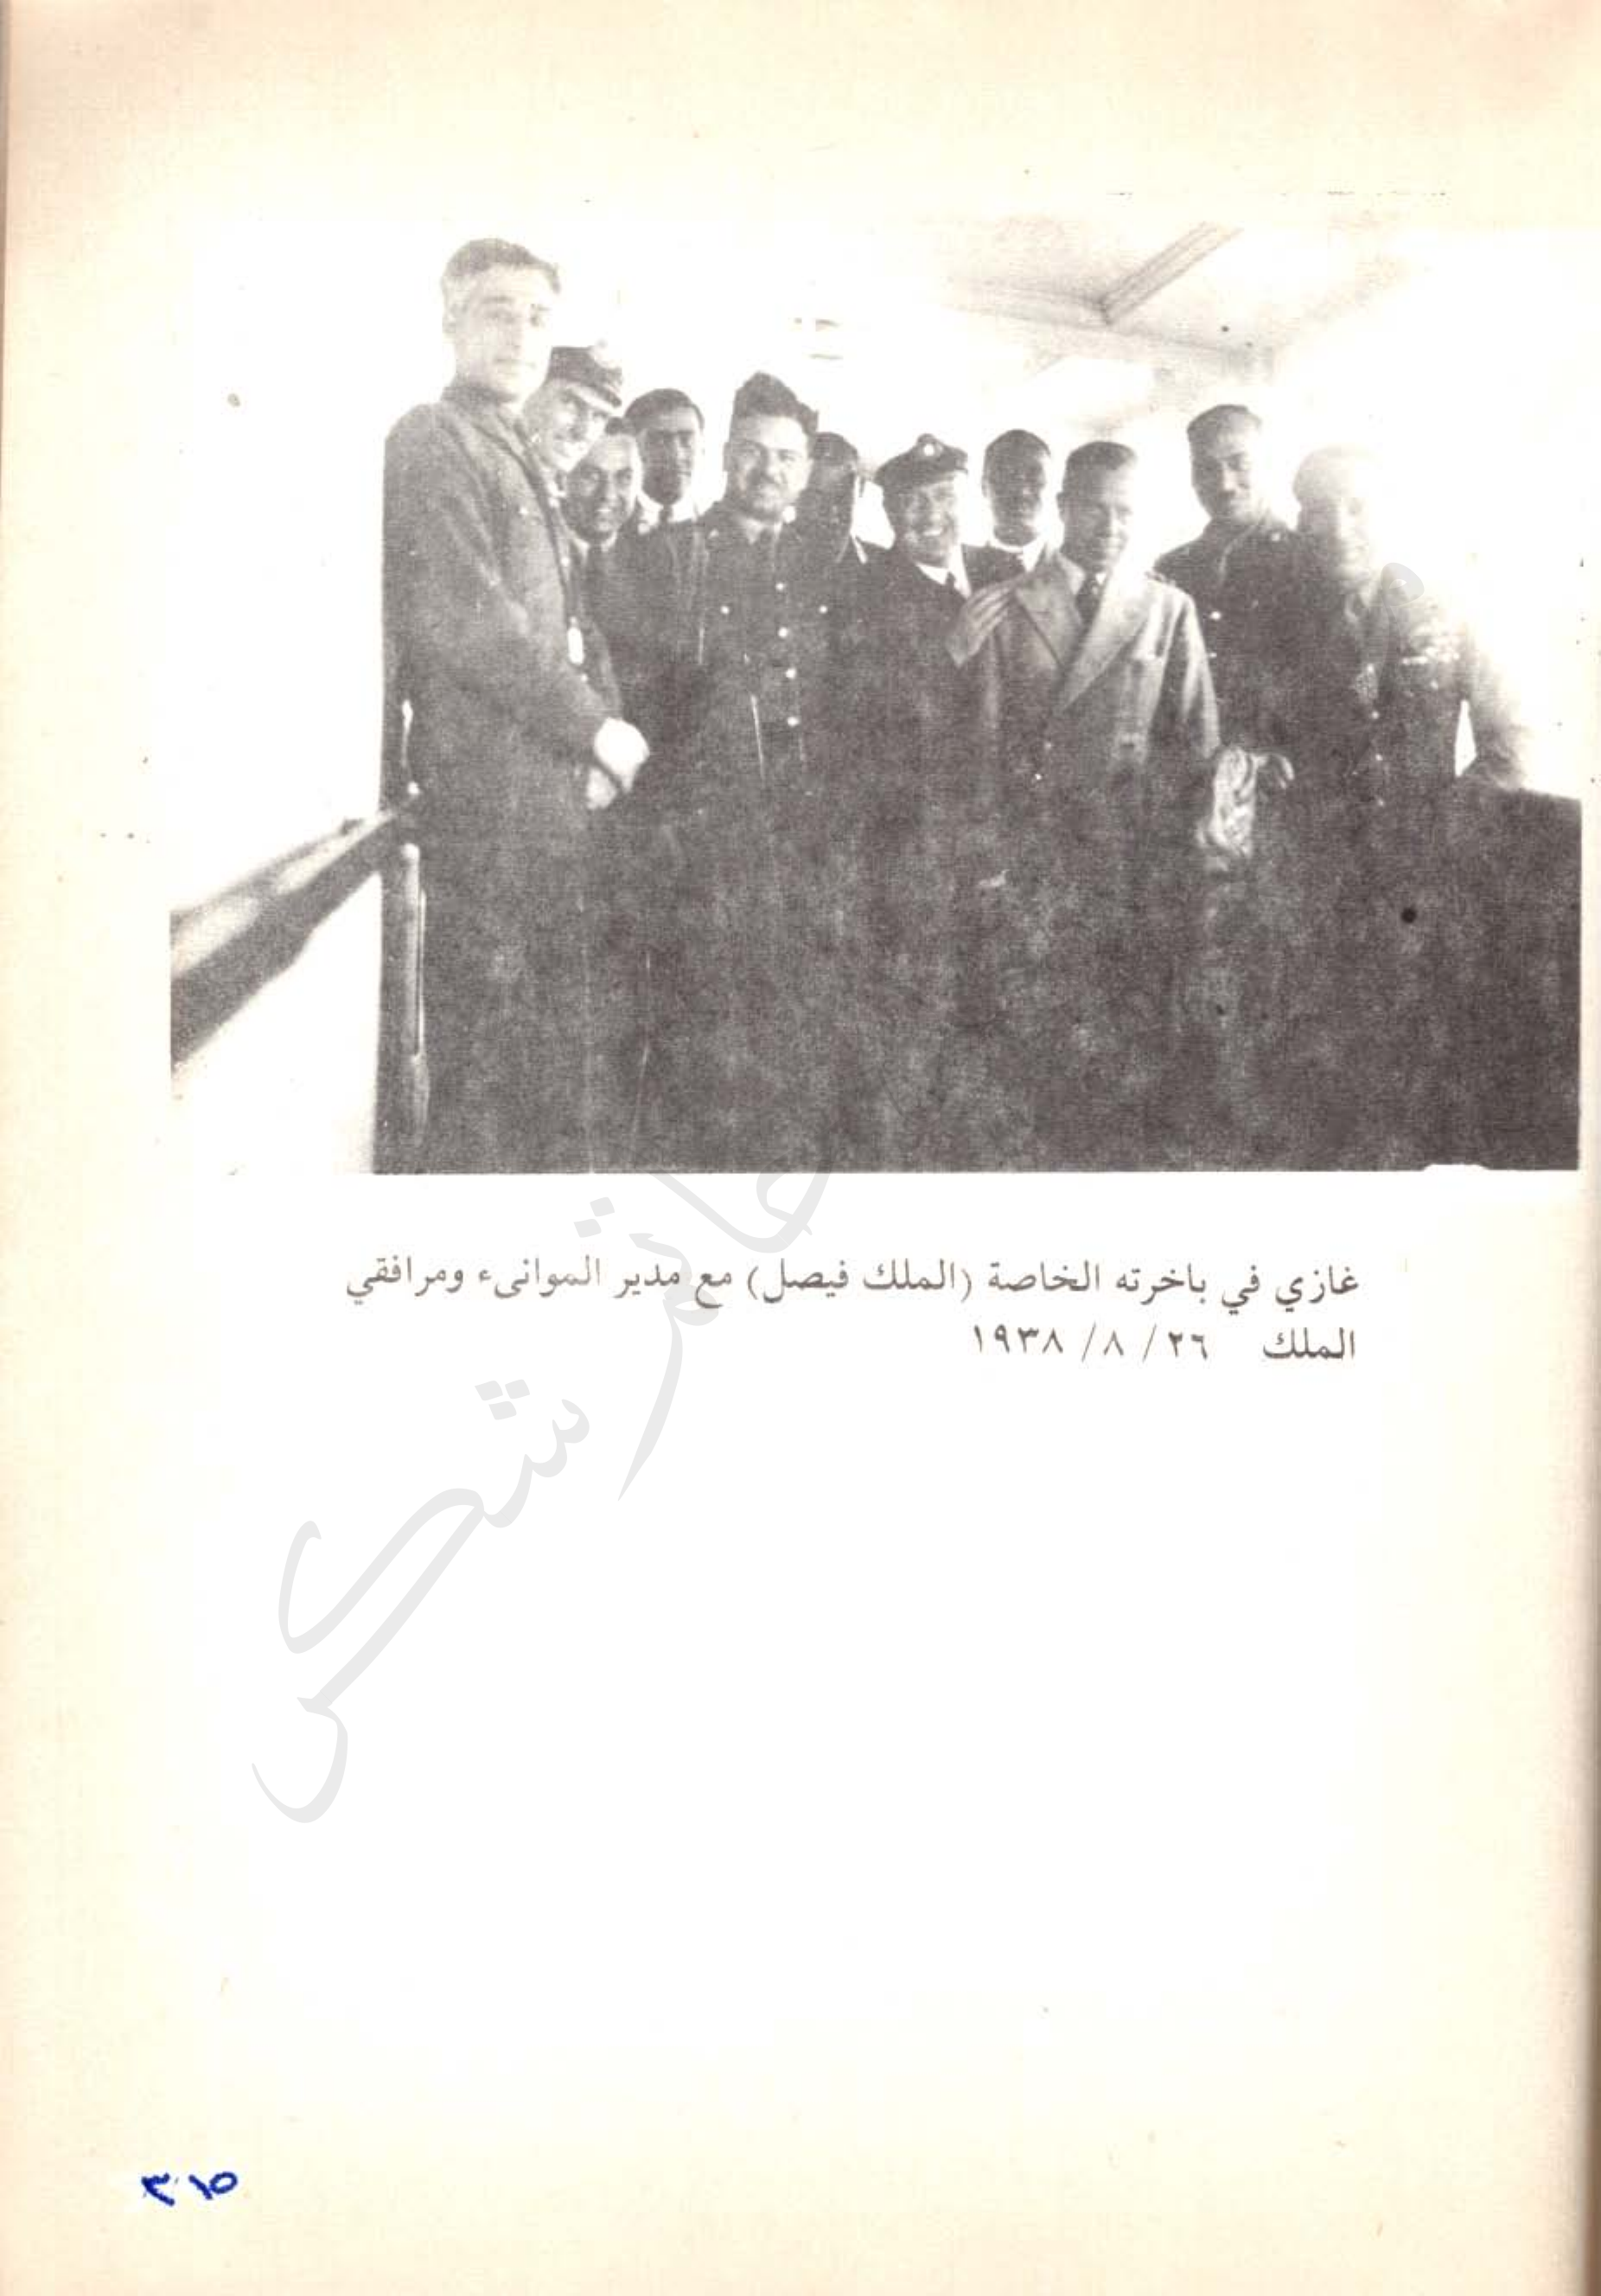 غازي في باخرته الخاصة (الملك فيصل) مع مدير الموانىء ومرافقي
الملك ٢٦/ ٨/ ١٩٣٨
٣١٥